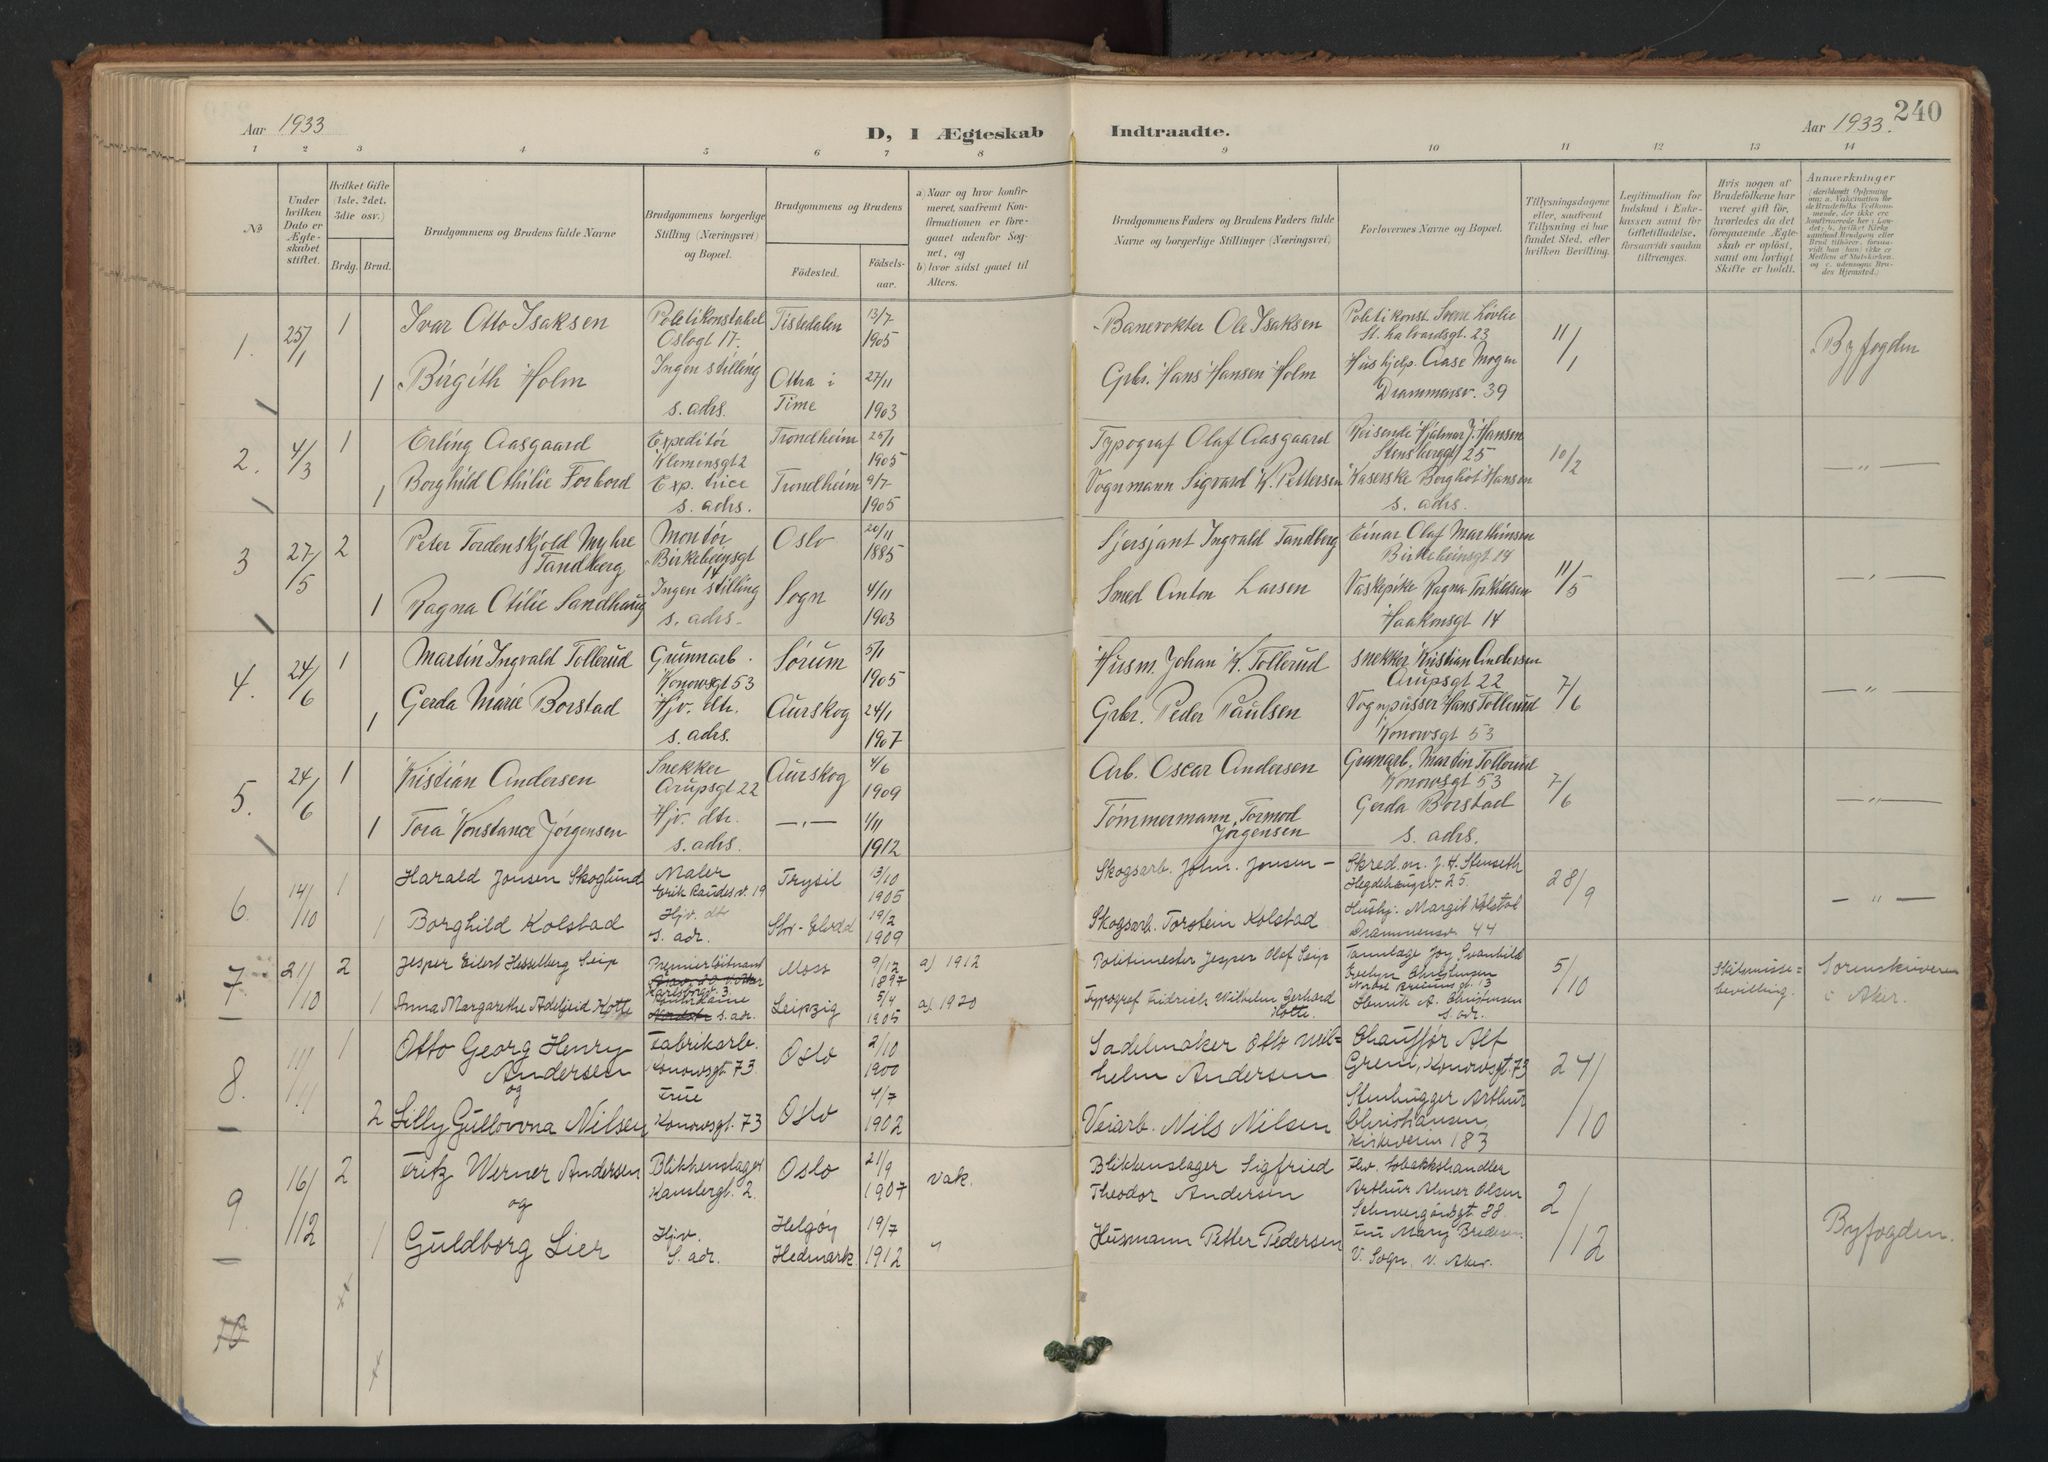 Aar 1933
D, I Ægteskab Indtraadte.
Aar 1933.
240
1 2 3 4 5 6 7 8 9 10 11 12 13 14
No
Under hvilken Dato er Ægteskabet stiftet.
Hvilket Gifte (1ste, 2det, 3die osv.)
Brdg. Brud.
Brudgommens og Brudens fulde Navne
Brudgommens borgerlige Stilling (Næringsvei) og Bopæl.
Brudgommens og Brudens
Fødested.
Fødselsaar.
a) Naar og hvor konfirmeret, saafremt Konfirmationen er foregaaet udenfor Sognet, og
b) hvor sidst gaaet til Alters.
Brudgommens Faders og Brudens Faders fulde Navne og borgerlige Stillinger (Næringsvei)
Forlovernes Navne og Bopæl.
Tillysningsdagene eller, saafremt Tillysning ei har fundet Sted, efter hvilken Bevilling.
Legitimation for Indskud i Enkekassen samt for Giftetilladelse, forsaavidt saadan tiltrænges.
Hvis nogen af Brudefolkene har været gift før, hvorledes da det foregaaende Ægteskab er opløst, samt om lovligt Skifte er holdt.
Anmærkninger
1. 25/1 1 Ivar Otto Isaksen Politikonstabel Oslogt 17. Tistedalen 13/7 1905 Banevokter Ole Isaksen Politikonst. Sverre Løvlie St. halvardsgt. 23 11/1 Byfogden
1 Birgith Holm Ingen stilling s. adrs. Ottra i Time 27/11 1903 Grbr. Hans Hansen Holm Hushjelp. Aase Mogen Drammensv. 39
2. 4/3 1 Erling Aasgaard Expeditør Klemensgt 2 Trondheim 25/1 1905 Typograf Olaf Aasgaard Reisende Hjalmar J. Hansen Stensberggt 25 10/2 —〃—
1 Borghild Othilie Forbord Exp. trice s. adrs. Trondheim 9/7 1905 Vognmann Sigvard K. Pettersen Kaserske Borghöt Hansen s. adrs.
3 27/5 2 Peter Tordenskjold Myhre Tandberg Montør Birkebeinsgt 14 Oslo 20/11 1885 Sjersjant Ingvald Tandberg Einar Olaf Marthinsen Birkebeinsgt 14 11/5 —〃—
1 Ragna Otilie Sandhaug Ingen stilling s. adrs. Sogn 4/11 1903 Smed Anton Larsen Vaskepike Ragna Torkildsen Haakonsgt 14
4. 24/6 1 Martin Ingvald Tollerud Gummarb. Konowsgt 53 Sørum 5/1 1905 Husm. Johan K. Tollerud snekker Kristian Andersen Arupsgt 22 7/6 —〃—
1 Gerda Marie Borstad Hjv. dtr. s. adrs. Aurskog 24/1 1907 Grbr. Peder Paulsen Vognpusser Hans Tollerud Konowsgt 53
5. 24/6 1 Kristian Andersen Snekker Arupsgt 22 Aurskog 4/6 1909 Arb. Oscar Andersen Gumarb. Martin Tollerud Konowsgt 53 7/6 —〃—
1 Tora Konstance Jørgensen Hjv. dtr. s. adrs. —〃— 1/11 1912 Tømmermann Tormod Jørgensen Gerda Borstad s. adrs.
6 14/10 1 Harald Jonsen Skoglund Maler Erik Raudes v. 19 Trysil 13/10 1905 Skogsarb. John. Jonsen — Skred.m. J. H. Stenseth Hegdehaugsv. 25. 28/9 —〃—
1 Borghild Kolstad Hjv. dt s. adr. Stor-Elvdal 19/2 1909 Skogsarb. Torstein Kolstad Hushj. Margit Kolstad Drammensv 44
7 21/10 2 Jesper Eilert Hesselberg Seip Premierløitnant Karlsborgv. 3 Moss 9/12 1897 a) 1912 Politimester Jesper Olaf Seip Tannlæge Joy Svanhild Evelyn Christensen 5/10 Skilsmissebevilling. Sorenskriveren i Aker.
1 Anna Margarethe Adelheid Kotte s. adr. Leipzig 5/4 1905 a) 1920 Typograf Fridrich Wilhelm Gerhard Kotte. Henrik A. Christensen s. adr.
8. 11/11 1 Otto Georg Henry Andersen Fabrikarb. Konowsgt. 73 Oslo 2/10 1900 Sadelmaker Otto Wilhelm Andersen Chauffør Alf Greni, Konowsgt. 73 24/10
og
2 Lilly Gullovna Nilsen Frue Konowsgt. 73 Oslo 4/7 1902 Veiarb. Nils Nilsen Stenhugger Arthur Christiansen, Kirkeveien 183
9. 16/12 2 Fritz Werner Andersen Blikkenslager Kanslergt. 2. Oslo 21/9 1907 vak. Blikkenslager Sigfried Theodor Andersen Fhv. Tobakkshandler Arthur Almer Olsen Schweigårdsgt 88. 2/12 Byfogden.
og
1 Guldborg Lier Hjv. S. adr. Helgøy Hedmark 19/7 1912 〃 Husmann Petter Pedersen Fru Mary Bredesen V. Sogn, V. Aker.
10